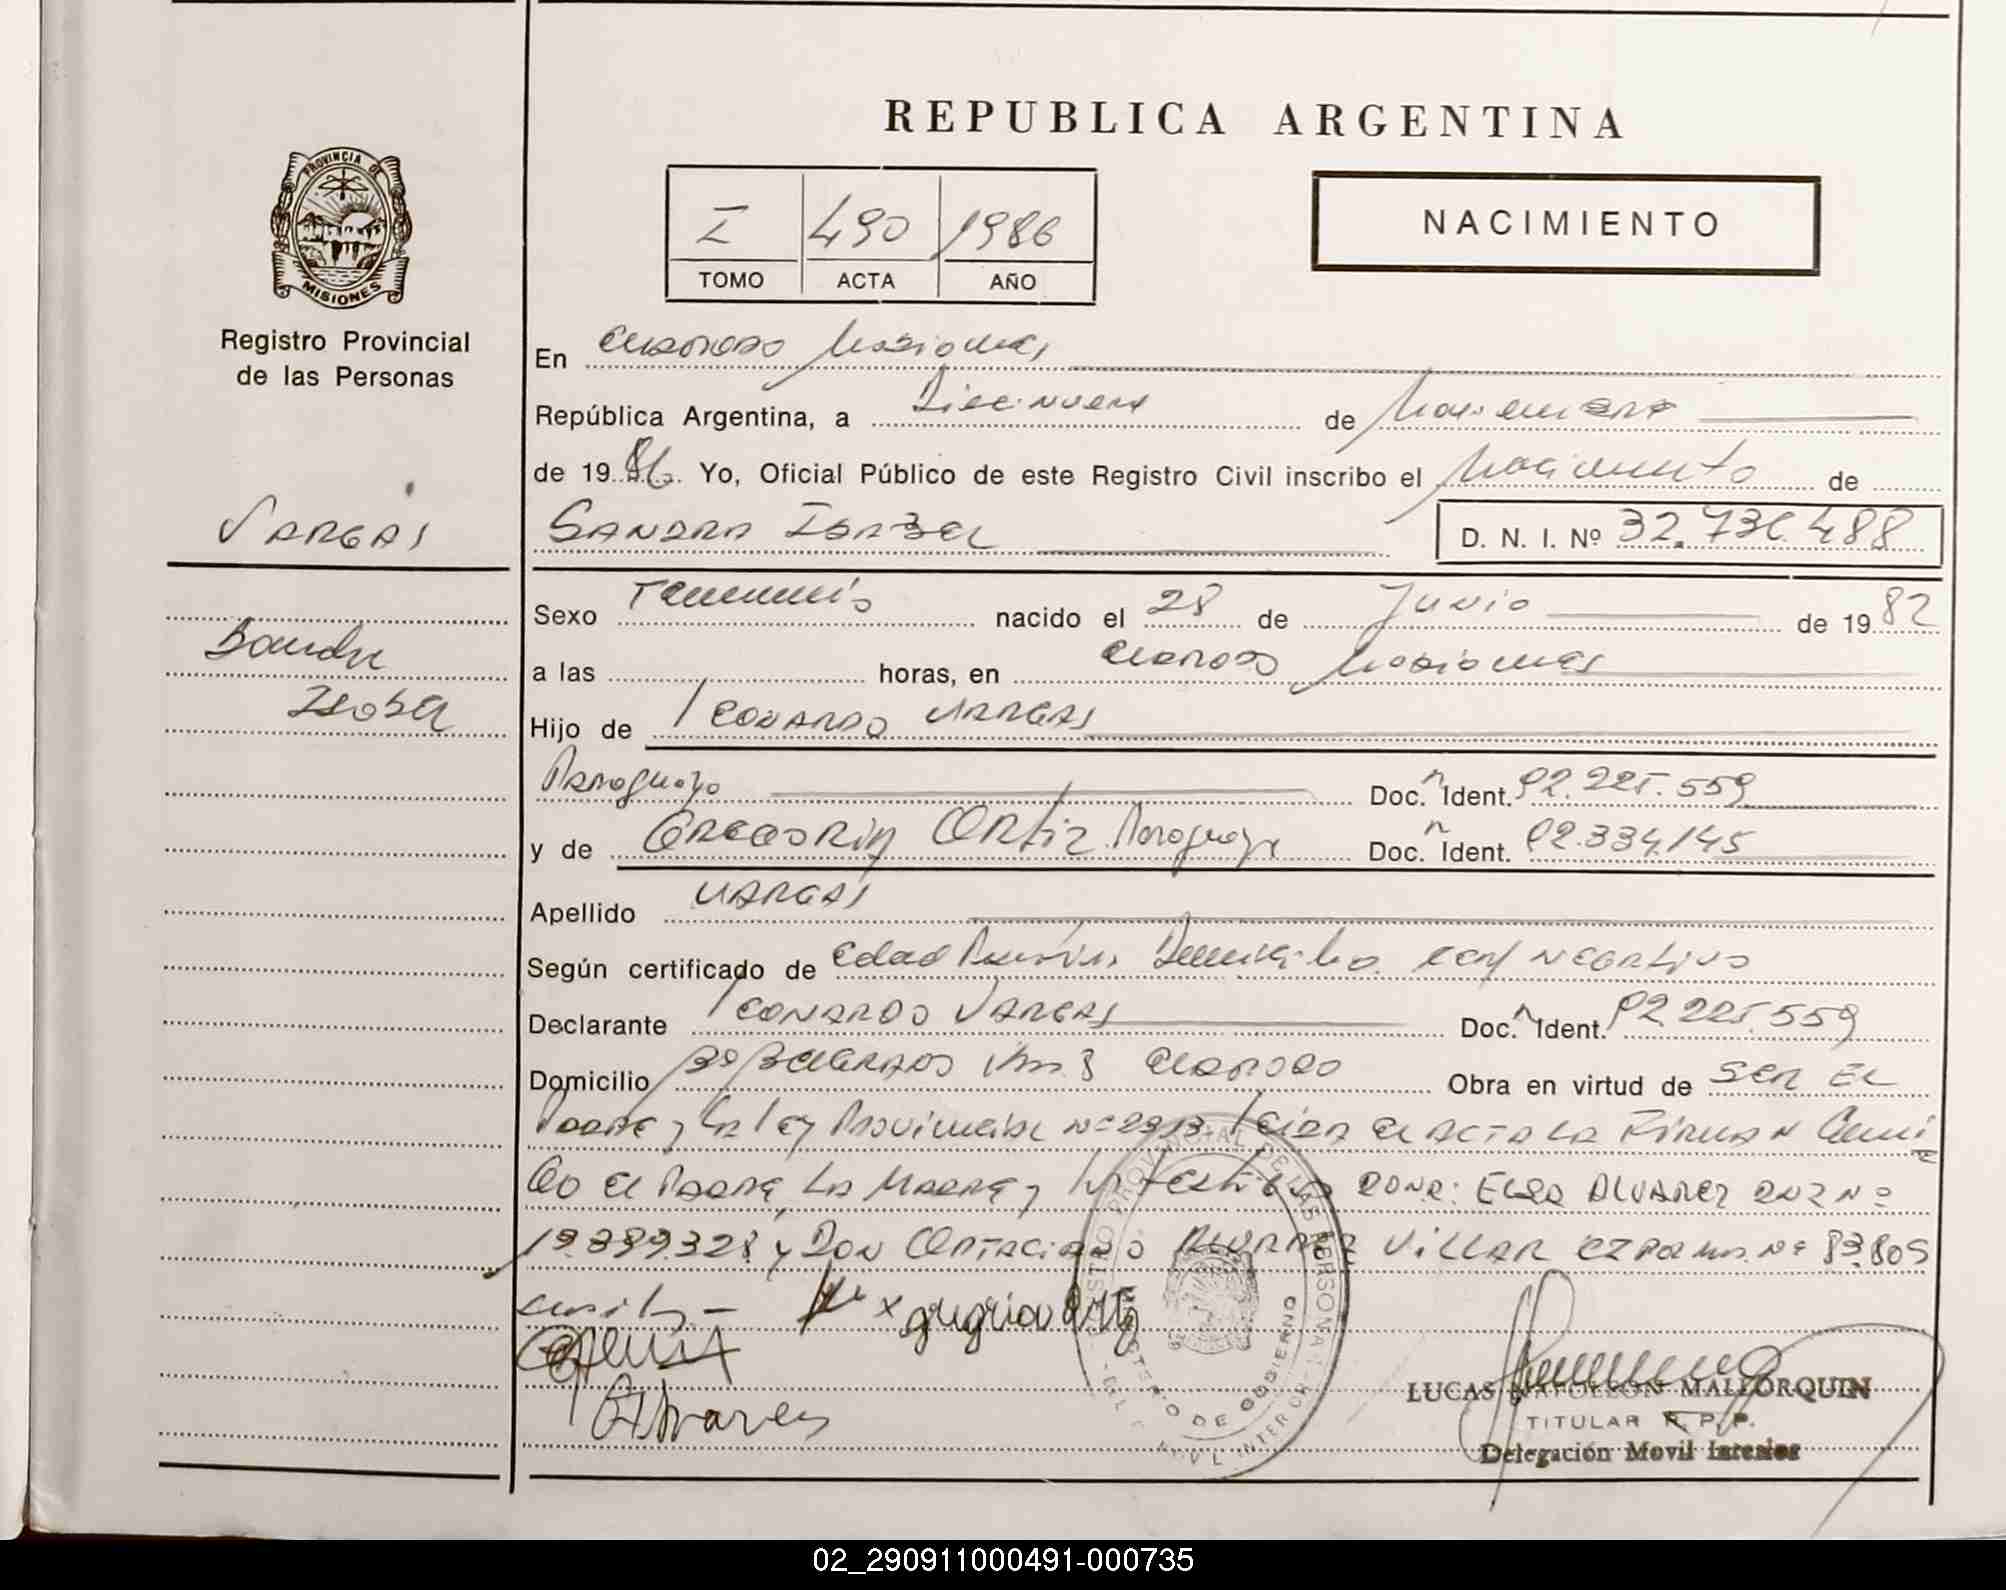 REPUBLICA ARGENTINA
PROVINCIA DE
MISIONES
Registro Provincial
de las Personas
I 490 1986
TOMO ACTA AÑO
NACIMIENTO
En Misiones
República Argentina, a Diecinueve de Noviembre
de 1986. Yo, Oficial Público de este Registro Civil inscribo el Nacimiento de
VARGAS
SANDRA ISABEL D. N. I. Nº 32.736.488
Sandra
Isabel
Sexo Femenino nacido el 28 de Junio de 1982
a las horas, en Misiones
Hijo de LEONARDO VARGAS
Paraguayo Doc.n Ident. 92.225.559
y de GREGORIA ORTIZ Paraguaya Doc.n Ident. 92.334.145
Apellido VARGAS
Según certificado de edad NEGATIVO
Declarante LEONARDO VARGAS Doc.n Ident. 92.225.559
Domicilio Obra en virtud de SER EL
PADRE y la ley Provincial Nº LEIDA el ACTA LA FIRMAN
el PADRE, LA MADRE y los testigos DOÑA: ELSA ALVAREZ DNI Nº
19.389.328 y DON ALVAREZ VILLAR Nº 83.805
x gregria Ortiz
Alvarez
LUCAS NAPOLEON MALLORQUIN
TITULAR R. P. P.
Delegación Movil Interior
02_290911000491-000735